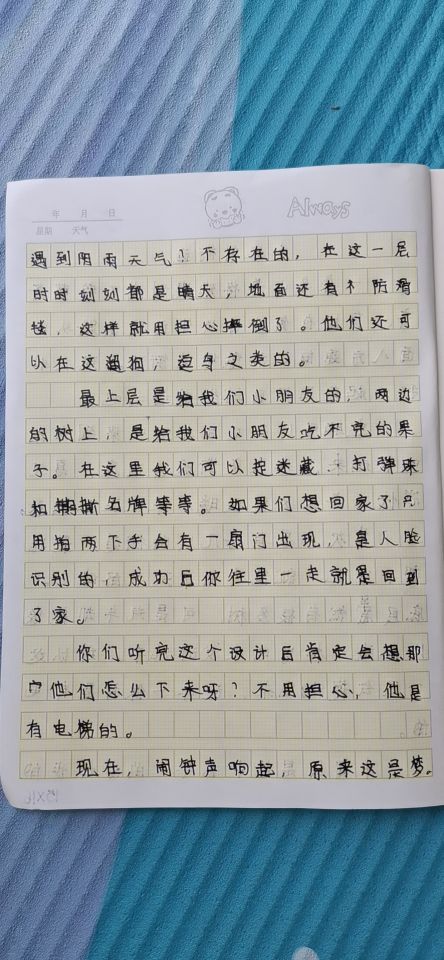 年 月 日
星期 天气
Always
遇到阴雨天气!不存在的,在这一层
时时刻刻都是晴天,地面还有个防滑
毯,这样就用担心摔倒了。他们还可
以在这遛狗,逗鸟之类的。
最上层是给我们小朋友的,两边
的树上,是给我们小朋友吃不完的果
子。在这里我们可以捉迷藏、打弹珠
和撕名牌等等。如果们想回家了只
用拍两下手会有一扇门出现,是人脸
识别的,成功后你往里一走就是回到
了家。
你们听完这个设计后肯定会想,那
它他们怎么下来呀?不用担心,他是
有电梯的。
现在,闹钟声响起,原来这是梦。